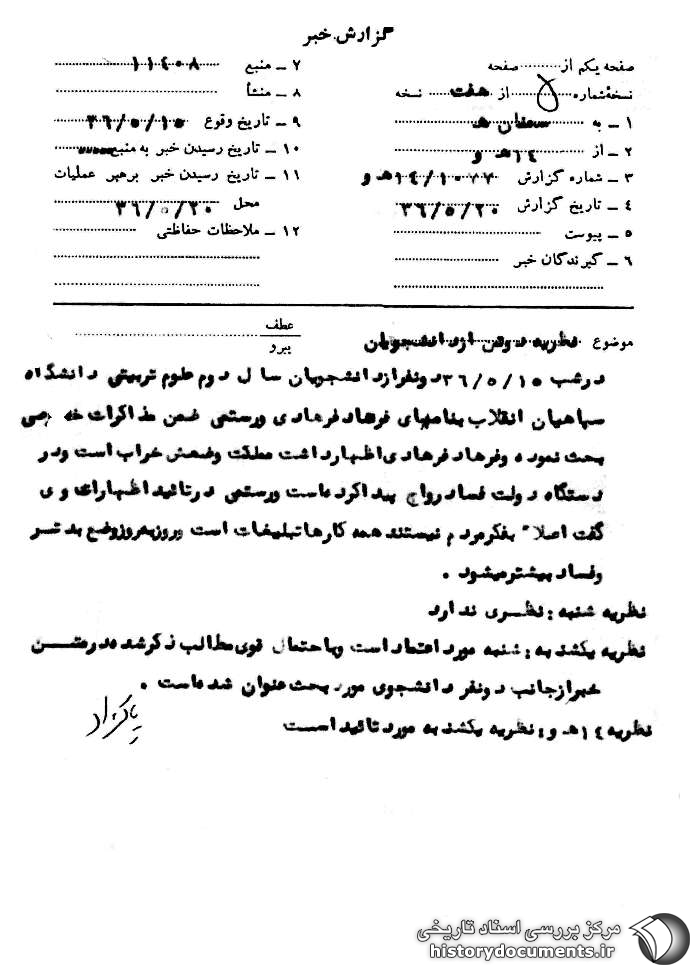 گزارش خبر
صفحه یکم از ............ صفحه
نسخهٔ شماره ۵ از هفت نسخه
۱ ـ به سمنان هـ
۲ ـ از ۱٤هـ و
۳ ـ شماره گزارش ۱٤/۱۰۷۷هـ و
٤ ـ تاریخ گزارش ۳٦/٥/۲۰
۵ ـ پیوست
٦ ـ گیرندگان خبر
۷ ـ منبع ۱۱٤۰۸
۸ ـ منشأ
۹ ـ تاریخ وقوع ۳٦/٥/۱٥
۱۰ ـ تاریخ رسیدن خبر به منبع
۱۱ ـ تاریخ رسیدن خبر برهبر عملیات
محل ۳٦/٥/۲۰
۱۲ ـ ملاحظات حفاظتی
عطف
پیرو
موضوع نظریه دوتن از دانشجویان
درشب ۳٦/٥/۱٥ دونفرازدانشجویان سال دوم علوم تربیتی دانشگاه
سپاهیان انقلاب بنامهای فرهاد فرهادی ورستمی ضمن مذاکرات خصوصی
بحث نموده وفرهاد فرهادی اظهارداشت مملکت وضعش خراب است ودر
دستگاه دولت فساد رواج پیداکرده‌است ورستمی درتائید اظهارات وی
گفت اصلا" بفکرمردم نیستند همه کارها تبلیغات است وروزبه‌روزوضع بدتر
وفساد بیشترمیشود .
نظریه شنبه : نظری ندارد
نظریه یکشنبه : شنبه مورد اعتماد است وباحتمال قوی مطالب ذکرشده‌درمتن
خبرازجانب دونفر دانشجوی مورد بحث عنوان شده‌است .
نظریه ۱٤هـ و : نظریه یکشنبه مورد تائید است
پاکزاد
مرکز بررسی اسناد تاریخی
historydocuments.ir